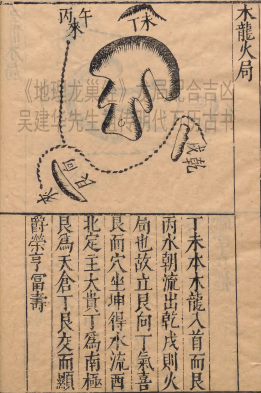 木龍火局
丁未
午丙
來
戌乾
艮向
丁未本木龍入首而艮
丙水朝流出乾戌則火
局也故立艮向丁氣喜
艮而穴坐坤得水流西
北定主大貴丁爲南極
艮爲天倉丁艮交而顯
爵榮亨富壽
《地理龙巢 局配合吉凶
吴建华先生 明代万历古书